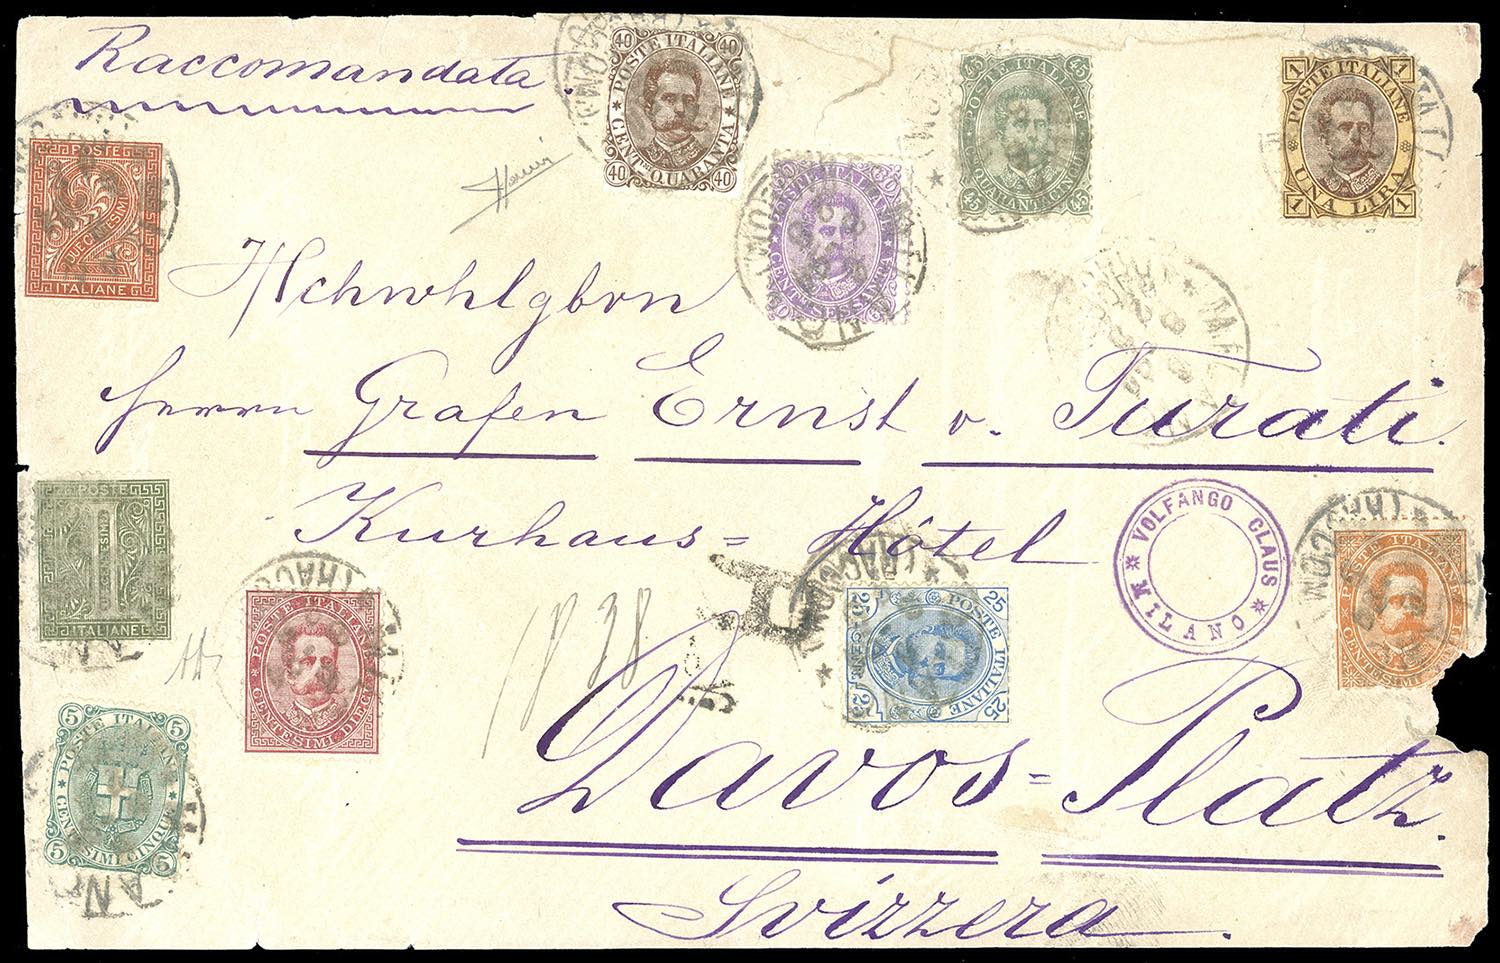 Raccomandata.
40 POSTE ITALIANE 40
40 CENT. QUARANTA 40
45 POSTE ITALIANE 45
45 QUARANTACINQUE 45
1 POSTE ITALIANE 1
1 UNA LIRA 1
60 POSTE ITALIANE 60
60 CENT. SESSANTA 60
POSTE
2
DUE CENTESIMI
ITALIANE
Hchwhlgbrn
Herrn Grafen Ernst v. Turati.
Kurhaus=Hôtel
POSTE
1
CENTESIMO
ITALIANE
VOLFANGO CLAUS
MILANO
POSTE ITALIANE
CENTESIMI
POSTE ITALIANE
CENTESIMI DIECI
25 POSTE ITALIANE 25
25 CENT. 25
1838
5 POSTE ITALIANE 5
5 CENTESIMI CINQUE 5
Davos=Platz.
Svizzera.